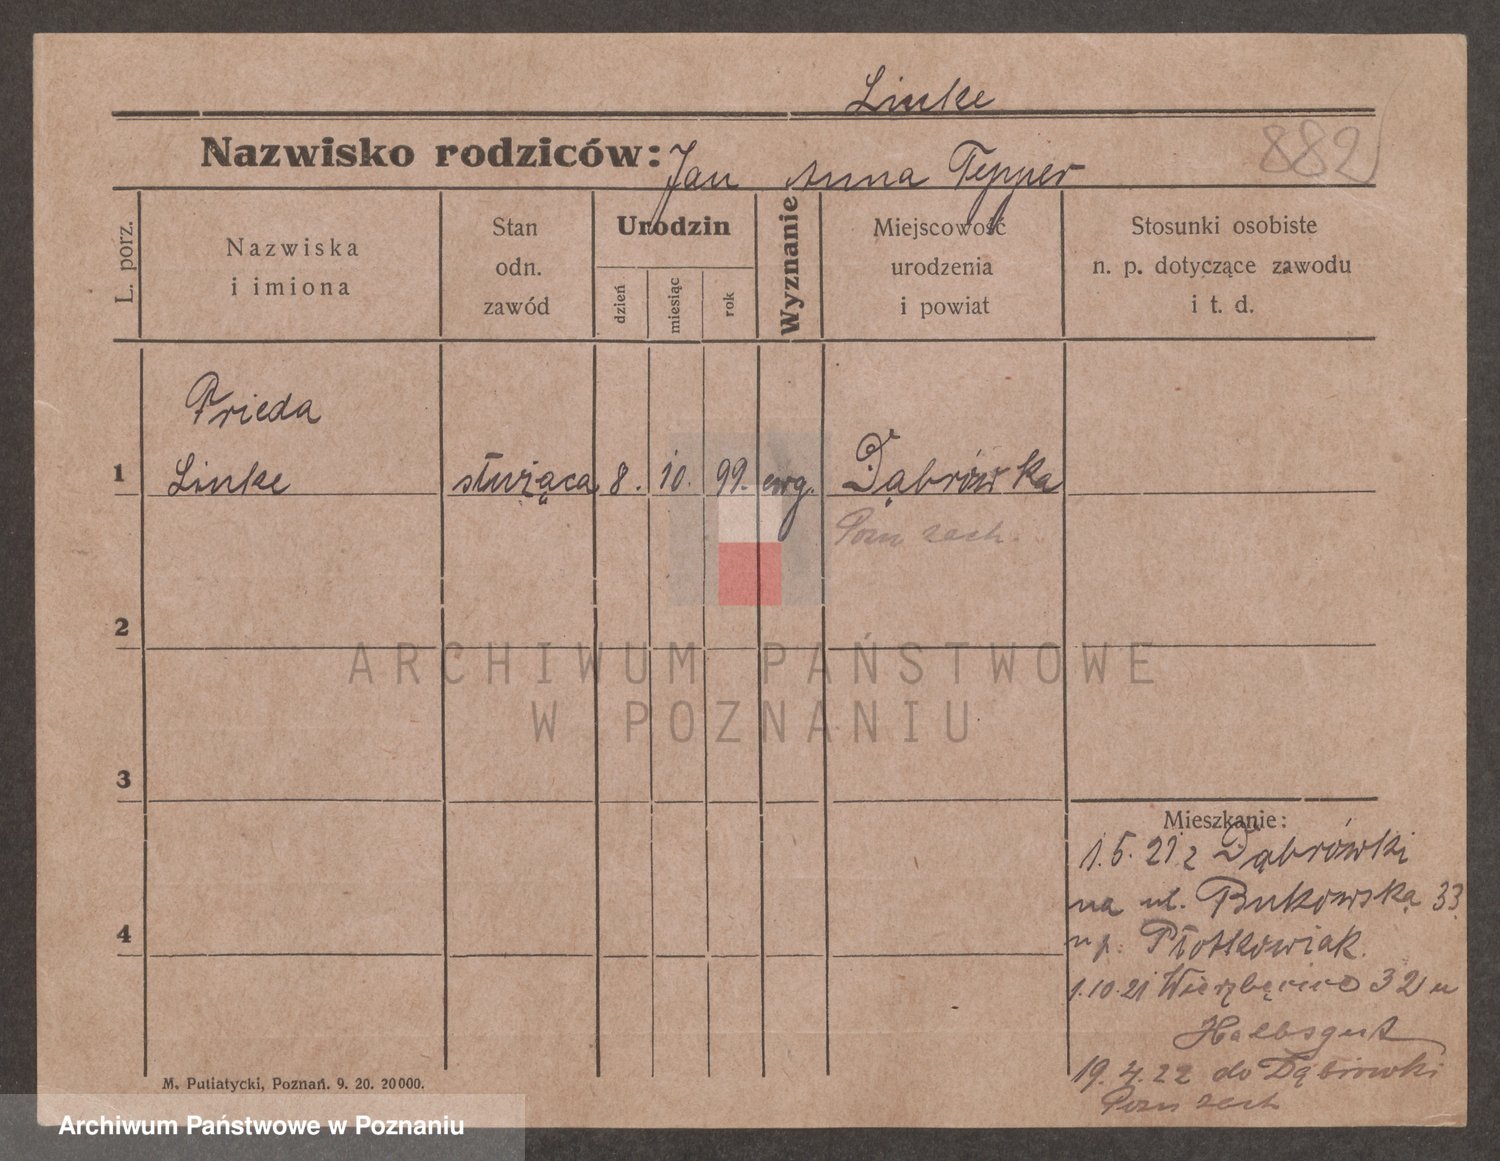 Linke
882
Nazwisko rodziców: Jan Anna Tepper
L. porz.
Nazwiska
i imiona
Stan
odn.
zawód
Urodzin
dzień
miesiąc
rok
Wyznanie
Miejscowość
urodzenia
i powiat
Stosunki osobiste
n. p. dotyczące zawodu
i t. d.
Frieda
1 Linke służąca 8. 10. 99. ewg. Dąbrówka
Pozn zach.
2
ARCHIWUM PAŃSTWOWE
W POZNANIU
3
Mieszkanie:
1.5.21 z Dąbrówki
na ul. Bukowską 33
4
n p. Płotkowiak.
1.10.21 Wierzbięcice 32 u
Halbsgut
19.4.22 do Dąbrówki
Pozn zach
M. Putiatycki, Poznań. 9. 20. 20000.
Archiwum Państwowe w Poznaniu